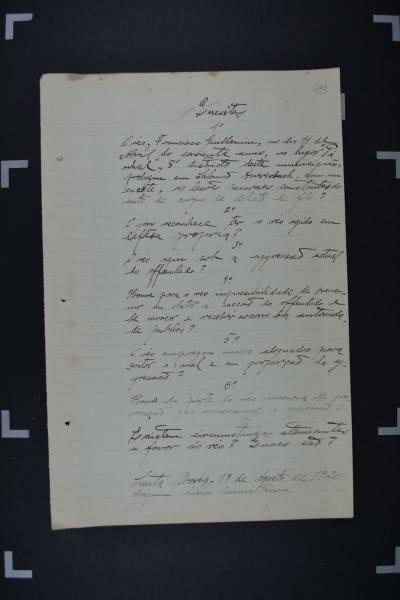 Quesitos
1º
O réo, Francisco Guilherme, no dia 11 de
Abril do corrente anno, no logar Pi
nhal, 8º districto deste municipio,
produziu em Salomão com um
cacete, as lesões pessoaes constantes do
auto de corpo de delicto de fls?
2º
O jury reconhece ter o réo agido em
defesa propria?
3º
O réo agiu sob a aggressão actual
do offendido?
4º
Houve para o réo impossibilidade de preve-
nir ou obstar a acção do offendido e
de invocar e receber soccorro da autorida-
de publica?
5º
O réo empregou meios adequados para
evitar o mal e em proporção da ag-
gressão?
6º
Houve da parte do réo ausencia de pro-
vocação que occasionasse a aggressão?
Existem circumstancias attenuantes
a favor do réo? Quaes são?
Santa Maria, 18 de Agosto de 1920